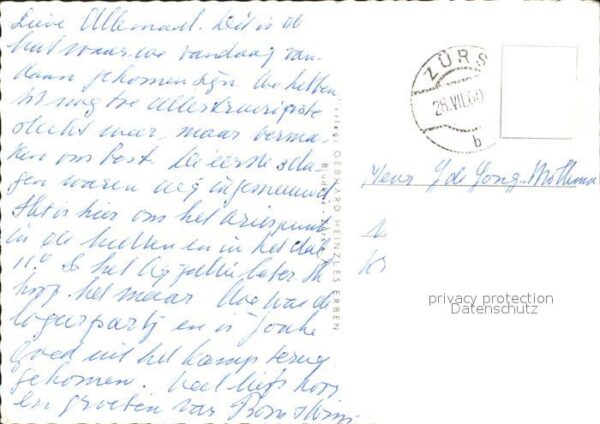 Lieve Allemaal. Dit is de
hut waar we vandaag van-
daan gekomen zijn. We hebben
tot nog toe allertreurigste
slecht weer, maar verma-
ken ons best. De eerste da-
gen waren we ingesneeuwd
Het is hier om het vriespunt
in de hutten en in het dal
11° Is het bij jullie beter. Ik
hoop het maar. Hoe was de
logeerpartij en is
goed uit het kamp terug
gekomen. Veel liefs hoor
en groeten van
Verlag GEBHARD HEINZLES ERBEN
ZÜRS
28.VII.60
b
Mevr J de Jong-
privacy protection
Datenschutz